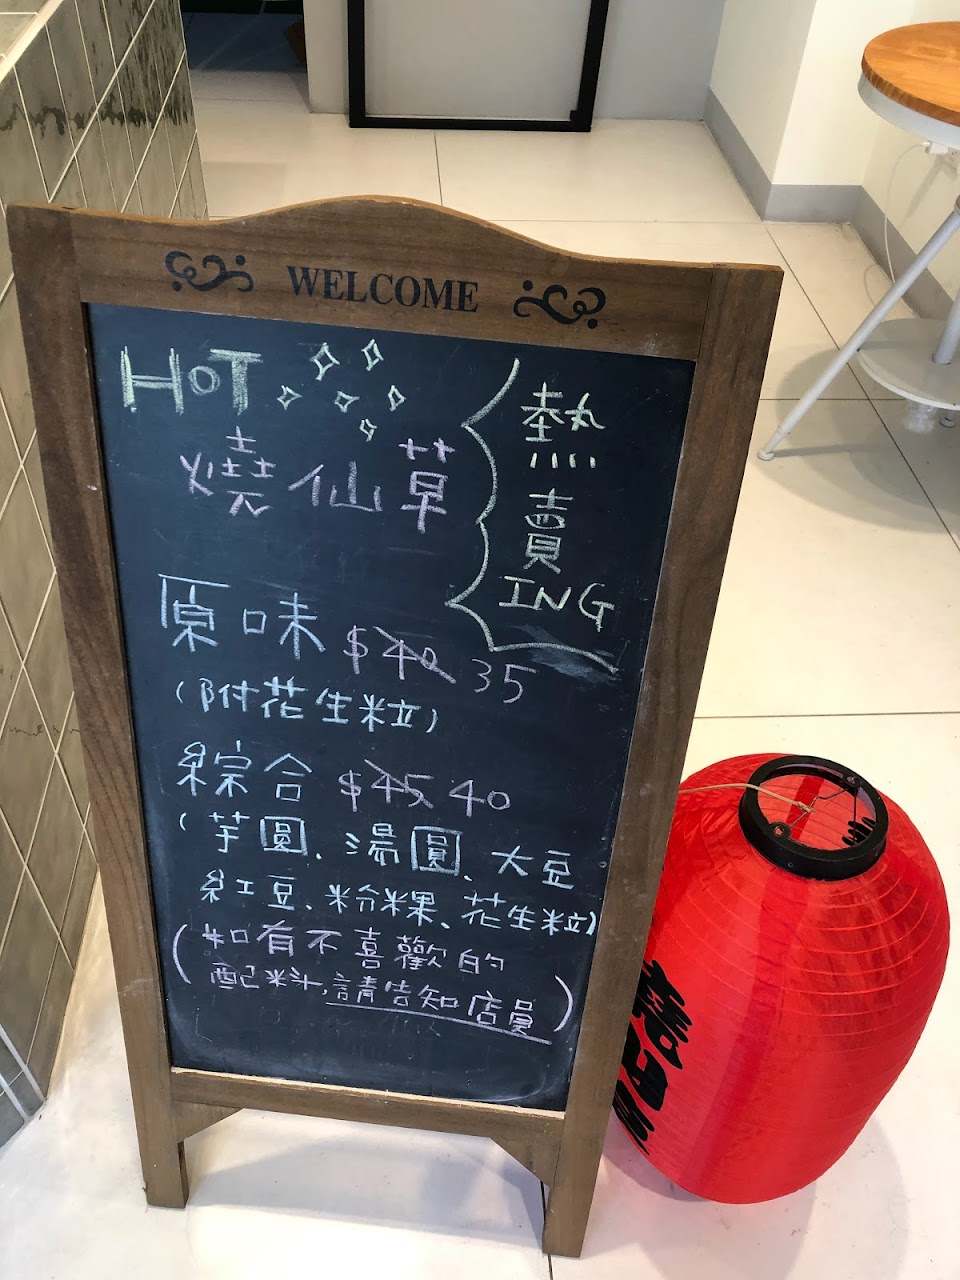 WELCOME
HOT
燒仙草
熱
賣
ING
原味 $40 35
(附花生粒)
綜合 $45 40
(芋圓、湯圓、大豆
紅豆、粉粿、花生粒)
(如有不喜歡的
配料,請告知店員)